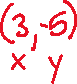 (3,-5)
x y